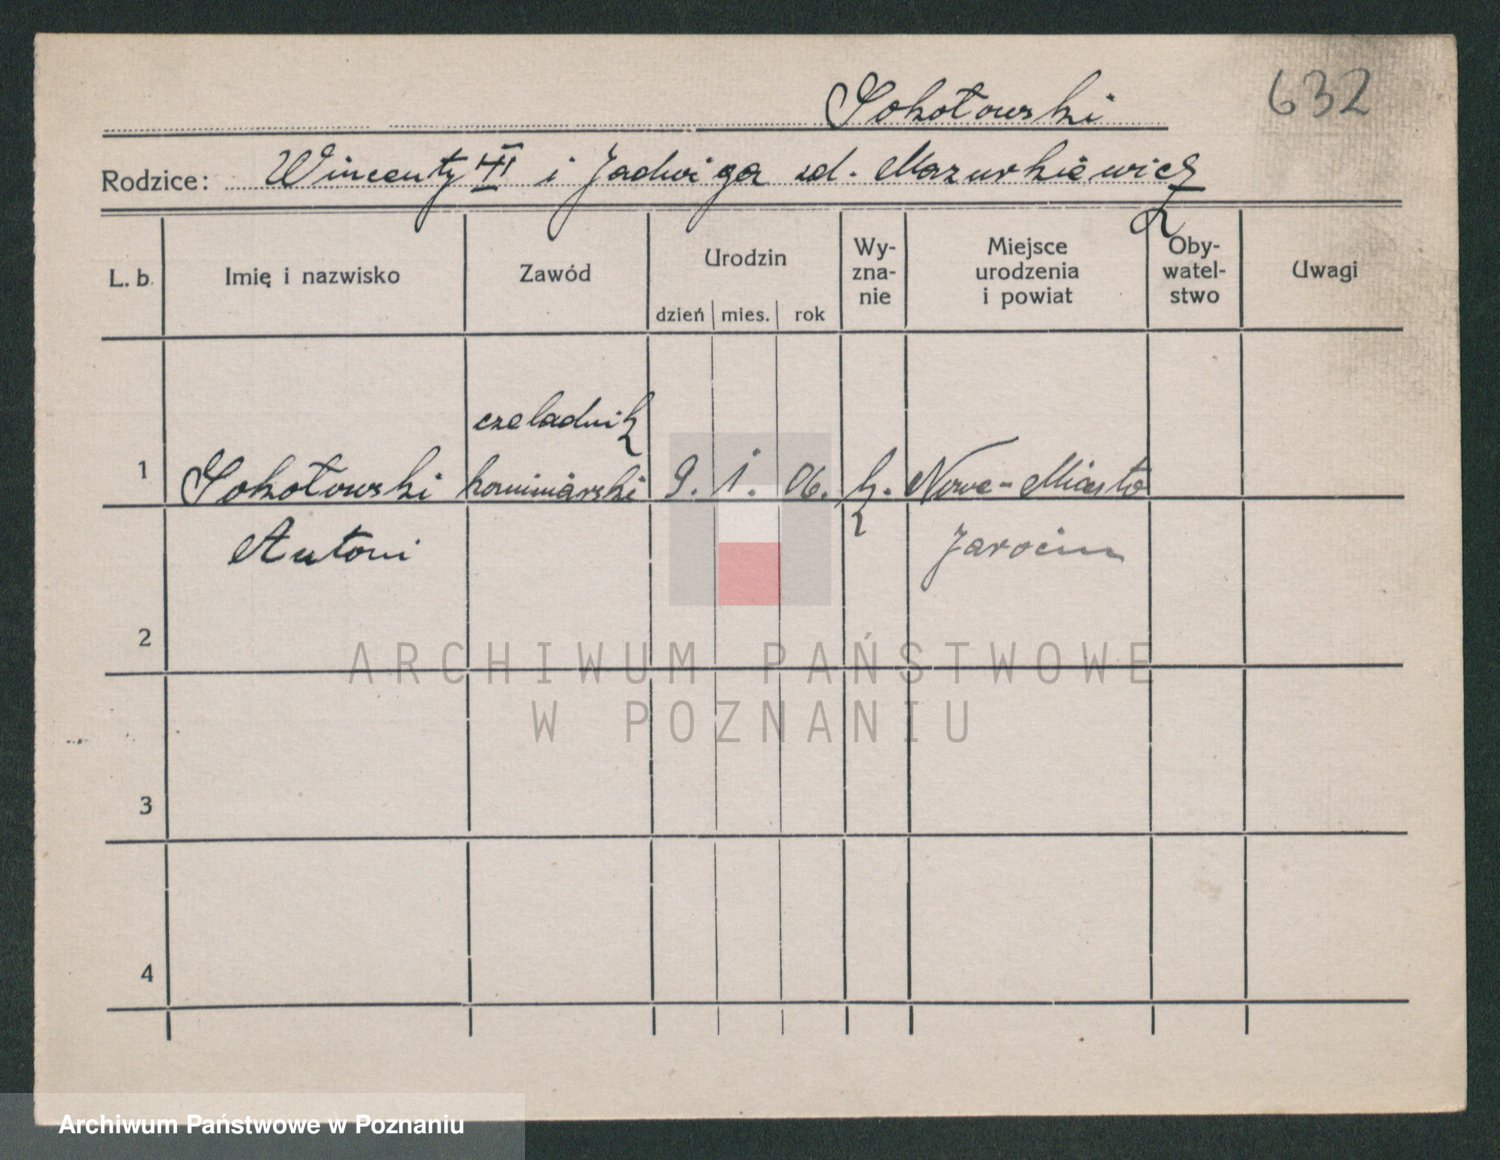 632
Sokołowski
Rodzice: Wincenty III i Jadwiga zd. Mazurkiewicz
L. b. Imię i nazwisko Zawód Urodzin dzień mies. rok Wy-zna-nie Miejsce urodzenia i powiat Oby-watel-stwo Uwagi
czeladnik
1 Sokołowski kominiarski 9. 1. 06. k. Nowe-Miasto
Antoni Jarocin
2
3
4
ARCHIWUM PAŃSTWOWE
W POZNANIU
Archiwum Państwowe w Poznaniu